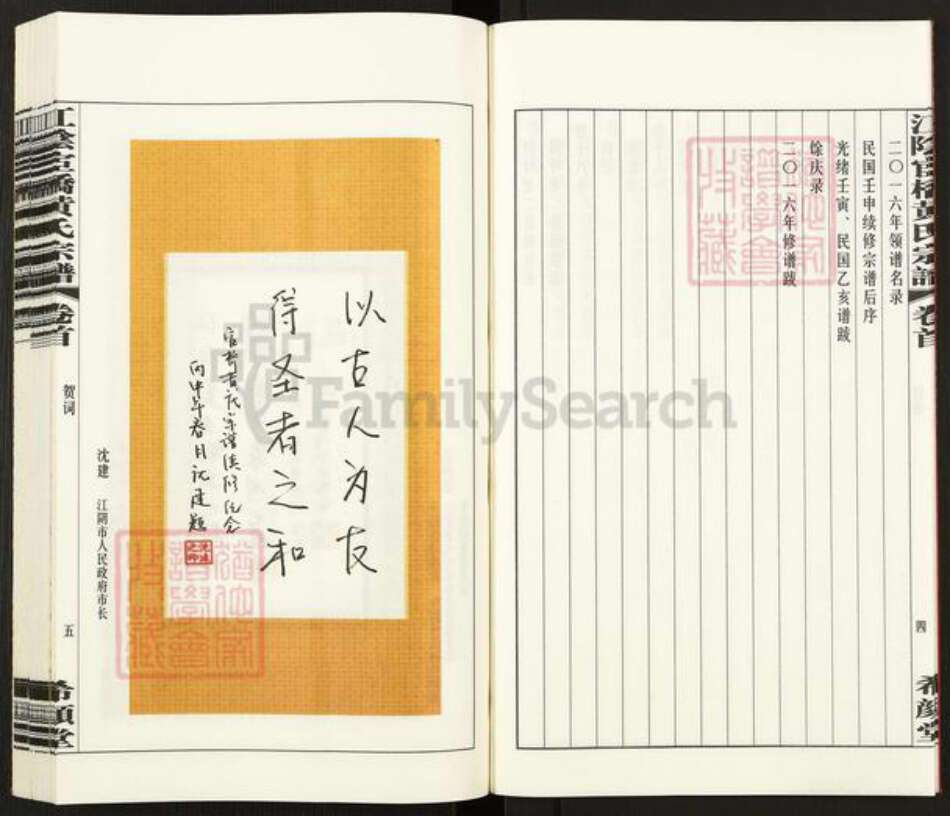 江阴官桥黄氏宗谱 卷首
二〇一六年领谱名录
民国壬申续修宗谱后序
光绪壬寅、民国乙亥谱跋
馀庆录
二〇一六年修谱跋
四
希颜堂
以古人为友
得圣者之和
官桥黄氏宗谱续修纪念
丙申年春月沈建题
沈建 江阴市人民政府市长
江陰官橋黄氏宗譜 卷首
贺词
五
希顔堂
FamilySearch